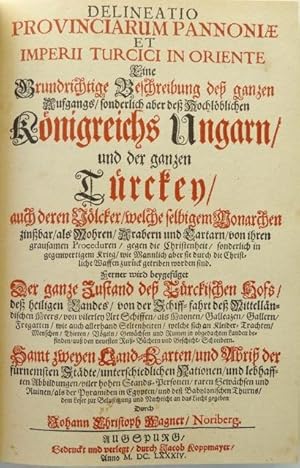 DELINEATIO
PROVINCIARUM PANNONIÆ
ET
IMPERII TURCICI IN ORIENTE
Eine
Grundrichtige Beschreibung deß ganzen
Aufgangs/ sonderlich aber deß Hochlöblichen
Königreichs Ungarn/
und der ganzen
Türckey/
auch deren Völcker/ welche selbigem Monarchen
zinßbar/ als Mohren/ Arabern und Tartarn/ von ihren
grausamen Proceduren/ gegen die Christenheit/ sonderlich in
gegenwertigem Krieg/ wie Mannlich aber sie durch die Christ-
liche Waffen zurück getrieben worden sind.
Ferner wird beygefüget
Der ganze Zustand deß Türckischen Hofs/
deß heiligen Landes/ von der Schiff-fahrt deß Mittellän-
dischen Meers/ von vilerley Art Schiffen/ als Nauonen/ Galleazen/ Gallern/
Fregatten/ wie auch allerhand Seltenheiten/ welche sich an Kleider-Trachten/
Menschen/ Thieren/ Vögeln/ Gewächsen und Ruinen in obgedachten Landen be-
finden/ auß den neuesten Reiß-Büchern und Geschicht-Schreibern.
Samt zweyen Land-Karten/ und Abriß der
fürnemsten Städte/ unterschiedlichen Nationen/ und lebhaff-
ten Abbildungen/ viler hohen Stands-Personen/ raren Gewächsen und
Ruinen/ als der Pyramiden in Egypten/ und deß Babylonischen Thurns/
dem Leser zur Belustigung und Nachricht an das Liecht gegeben
Durch
Johann Christoph Wagner/ Noriberg.
AUGSPURG/
Gedruckt und verlegt/ durch Jacob Koppmayer/
Anno M DC. LXXXIV.